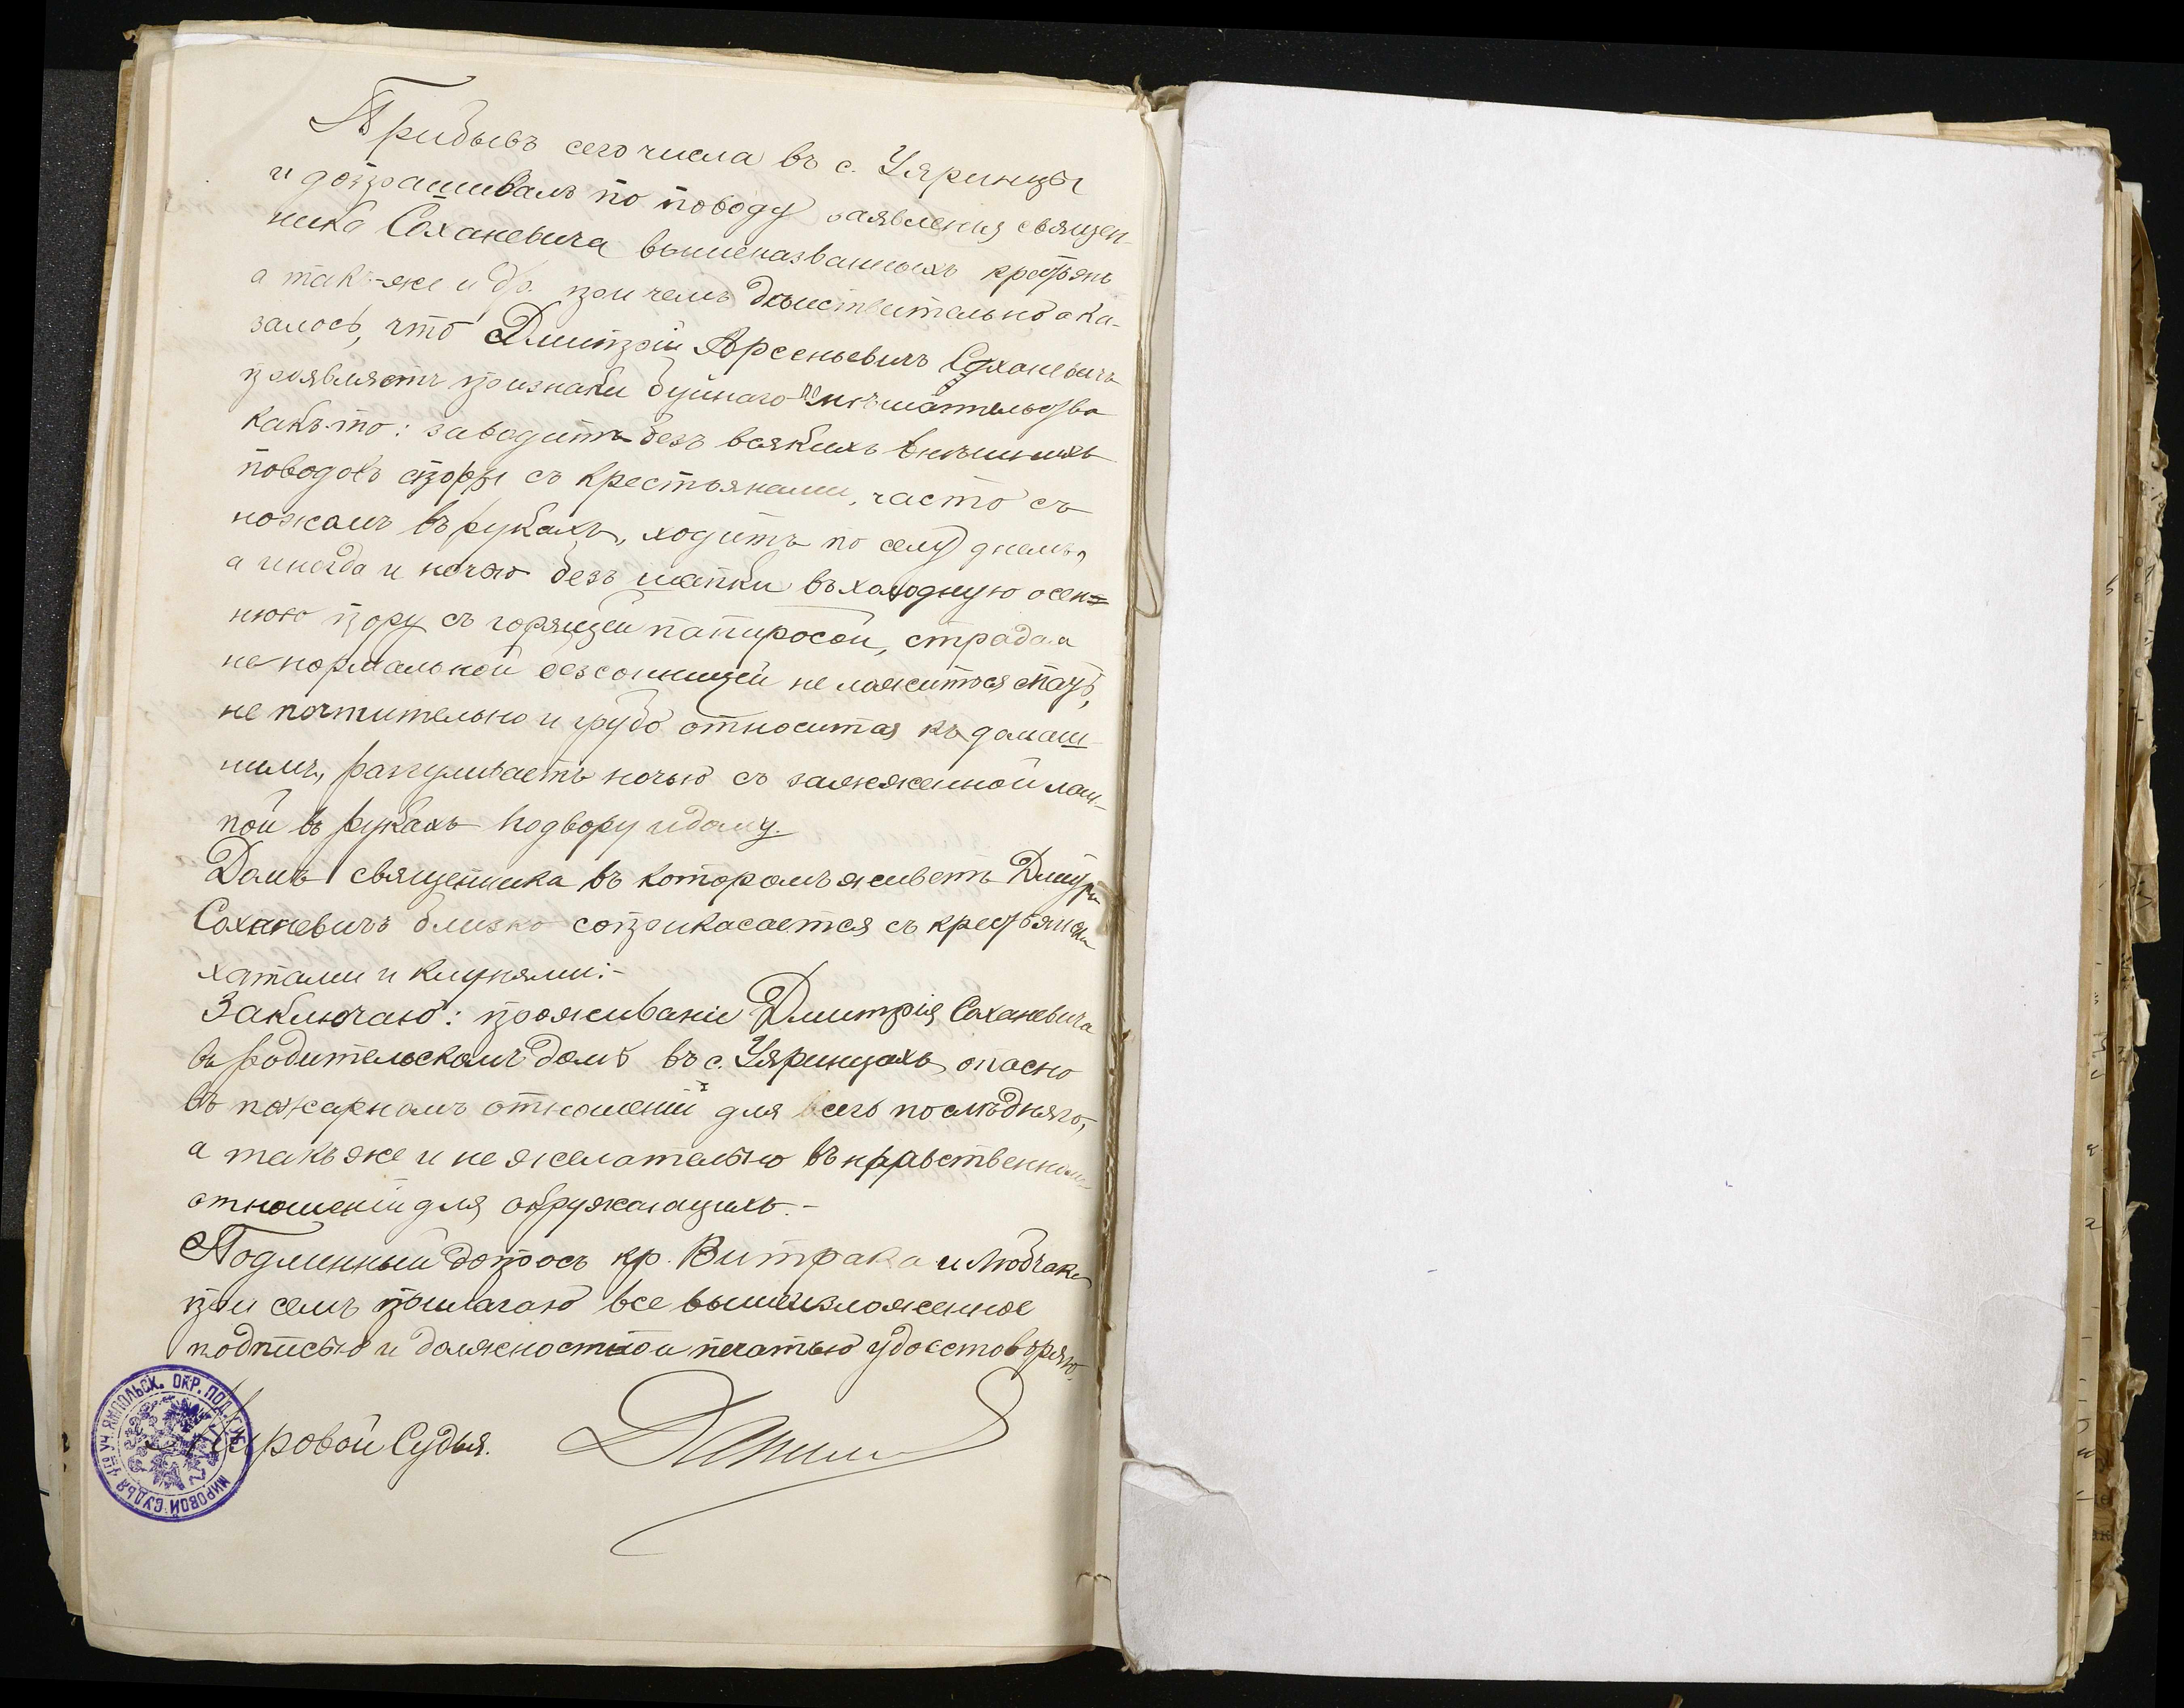 Прибывъ сего числа въ с. Уяринцы
и допрашивалъ по поводу заявления священ-
ника Соханевича вышеназванныхъ крестьянъ
а так-же и др. при чемъ дѣйствительно ока-
залось, что Дмитрій Арсеньевичъ Соханевичъ
проявляетъ признаки буйнаго помѣшательства
какъ-то: заводитъ безъ всякихъ внѣшнихъ
поводовъ споры съ крестьянами, часто съ
ножомъ въ рукахъ, ходитъ по селу днемъ,
а иногда и ночью безъ шапки въ холодную осен=
нюю пору съ горящей папиросой, страдая
не нормальной безсонницей не ложится спать,
не почтительно и грубо относится къ домаш
нимъ, разгуливаетъ ночью съ зажженной лам-
пой въ рукахъ по двору и дому.
Домъ священника въ которомъ живетъ Дмитрій
Соханевичъ близко соприкасается съ крестьянски
хатами и клунями:-
Заключаю: проживаніе Дмитрія Соханевича
въ родительскомъ домѣ въ с. Уяринцахъ опасно
въ пожарномъ отношеніи для всего послѣдняго,
а такъ же и не желательно въ нравственномъ
отношеніи для окружающихъ.-
Подлинный допросъ кр. Витрака и Любчака
при семъ прилагаю все вышеизложенное
подписью и должностной печатью удостовѣряю.
Мировой Судья.
МИРОВОЙ СУДЬЯ УЧ. ЯМПОЛЬСК. ОКР. ПОД. ГУБ.